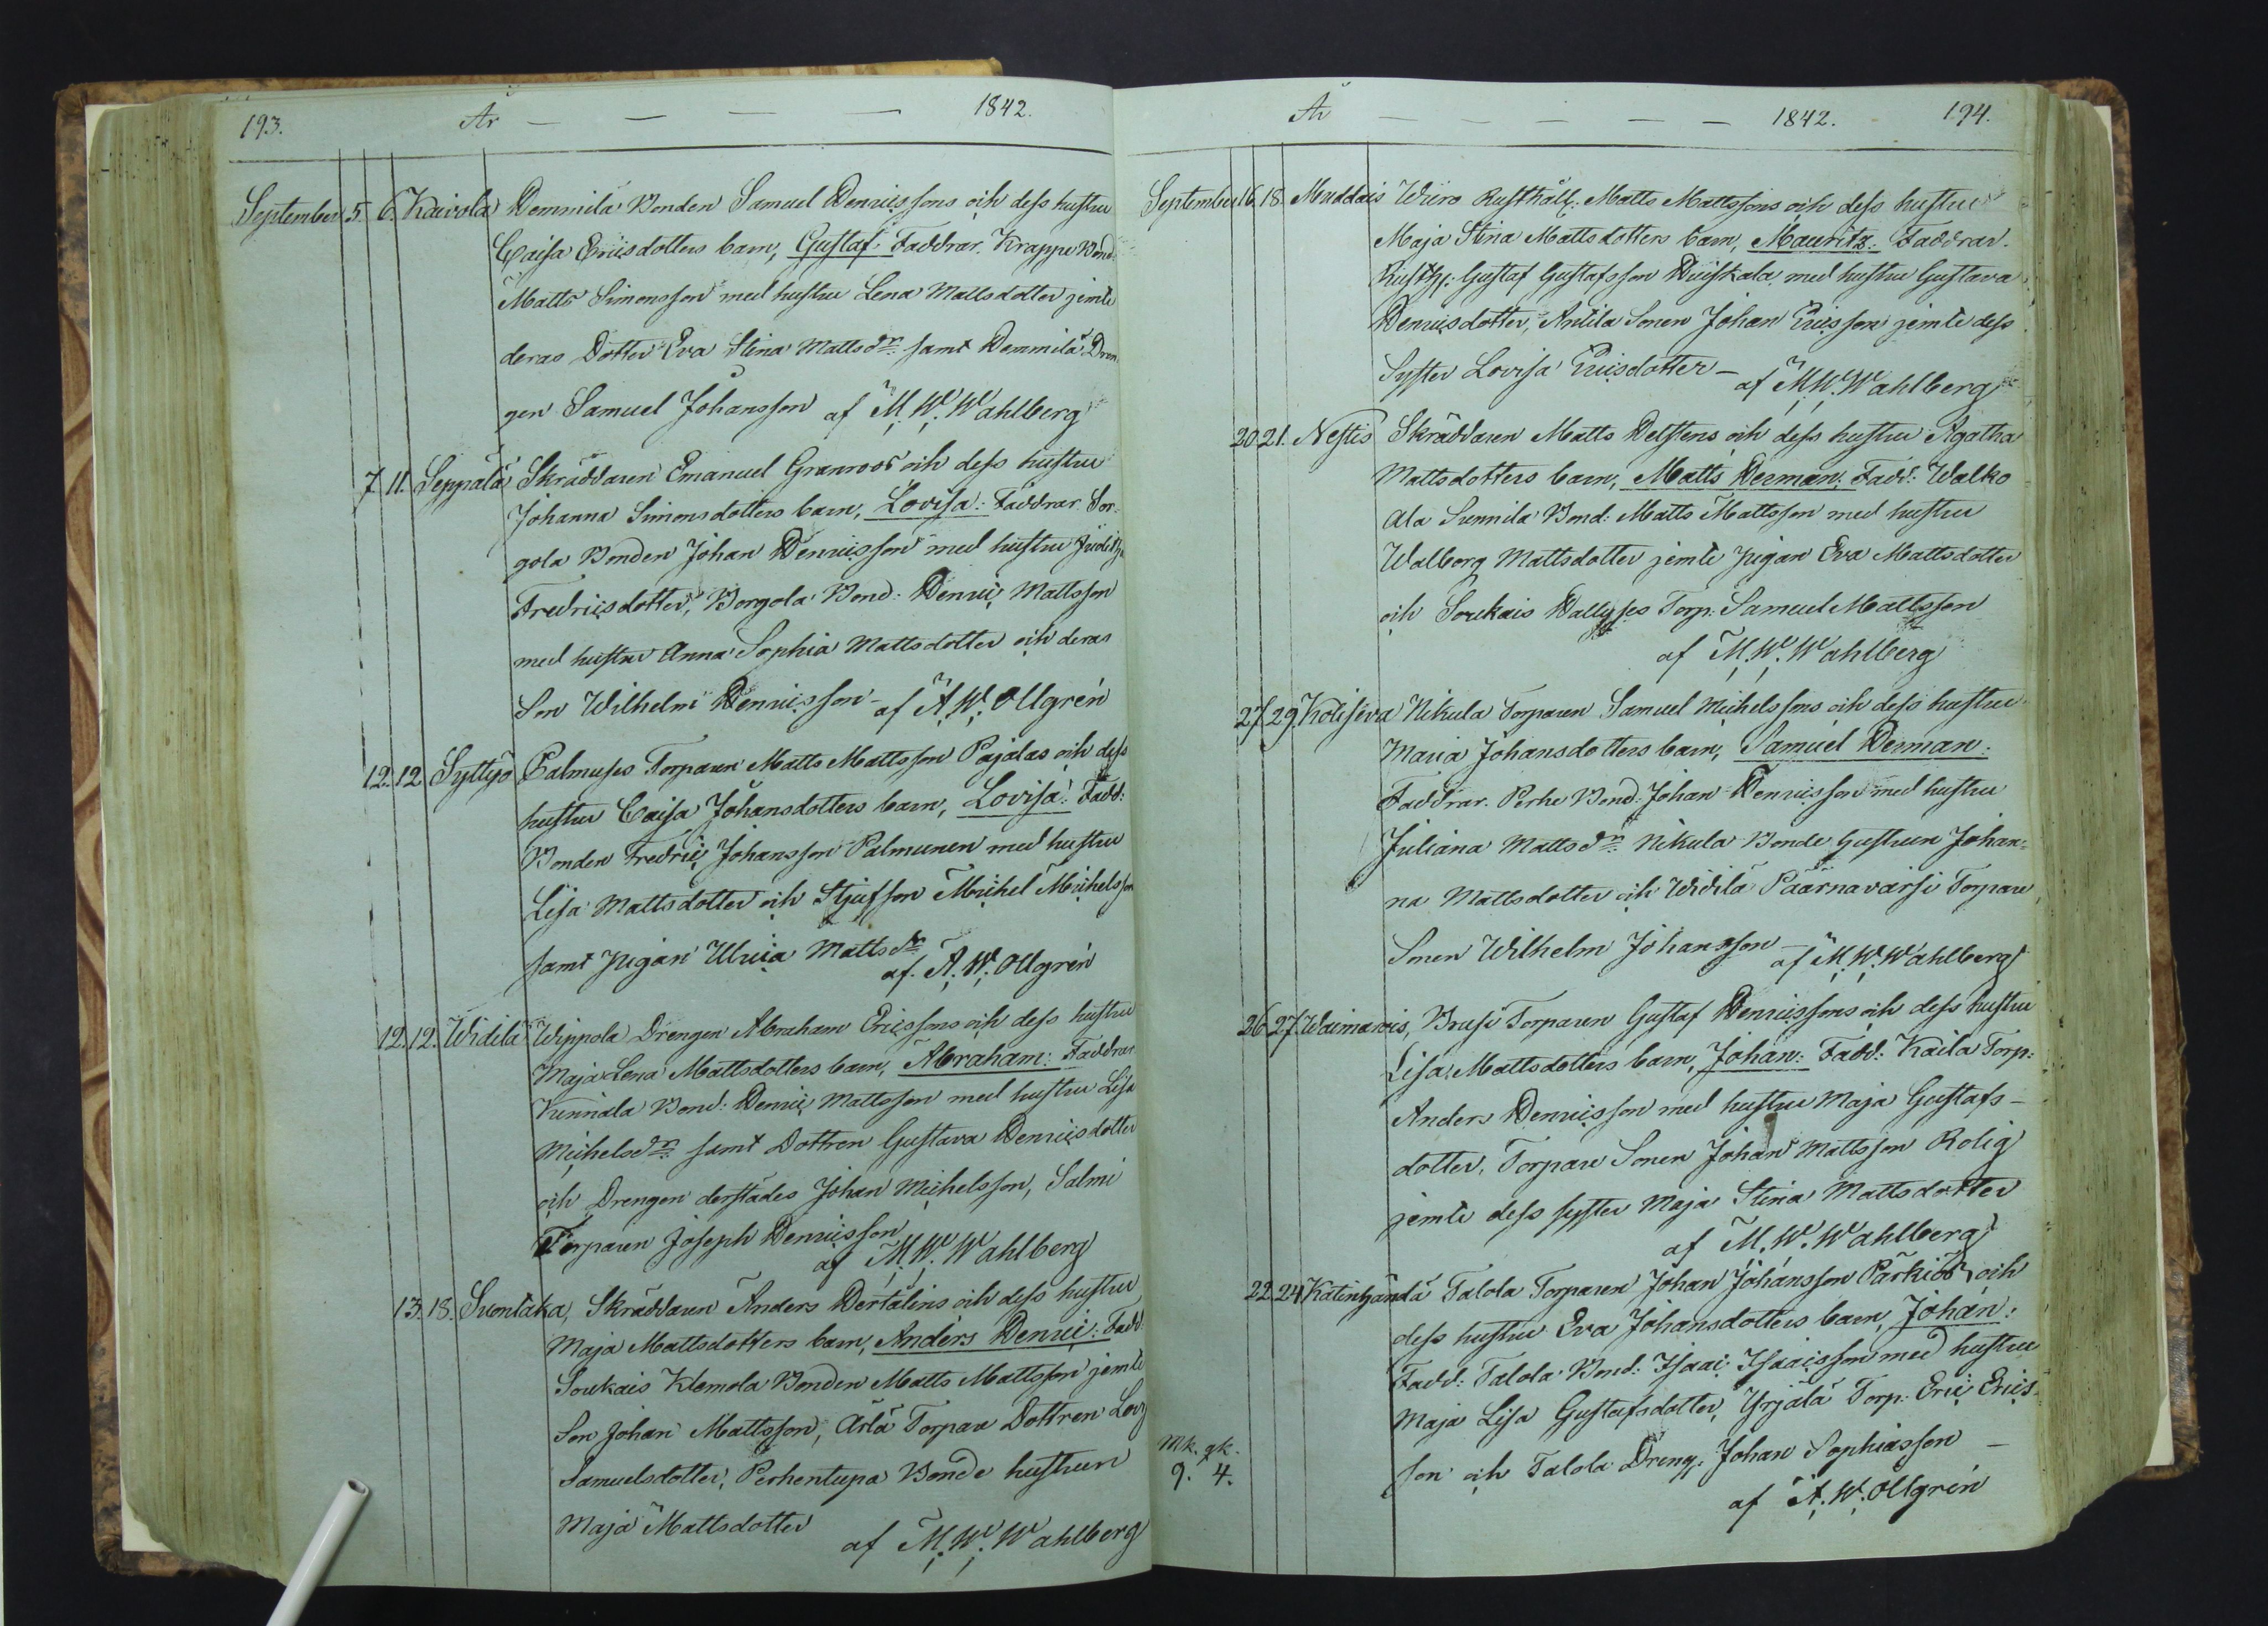 193. År — — — — 1842.
September 5. 6. Kaivola Demmilä Bonden Samuel Henricssons och dess hustru
Caisa Ericsdotters barn, Gustaf: Faddrar. Krappe Bond:
Matts Simonsson med hustru Lena Mattsdotter jemte
deras Dotter Eva Stina Mattsdr: samt Demmilä Dren
gen Samuel Johansson af M. W. Wahlberg
7. 11. Seppälä Skräddaren Emanuel Granroos och dess hustru
Johanna Simonsdotters barn, Lovisa: Faddrar. Sor-
gola Bonden Johan Henricsson med hustru
Fredricsdotter, Borgola Bond: Henric Mattsson
med hustru Anna Sophia Mattsdotter och deras
Son Wilhelm Henricsson – af A. W. Ollgrén
12. 12. Syttyö Palmuses Torparen Matts Mattsson Pajalas och dess
hustru Caisa Johansdotters barn, Lovisa: Fadd:
Bonden Fredric Johansson Palmunen med hustru
Lisa Mattsdotter och Stjufson Michel Michelsson
samt Pigan Ulrica Mattsdr:
af. A. W. Ollgrén
12. 12. Widilä Wippola Drengen Abraham Ericssons och dess hustru
Maja Lena Mattsdotters barn, Abraham: Faddrar
Kunnala Bond: Henric Mattsson med hustru Lisa
Michelsdr: samt Dottren Gustava Henricsdotter
och Drengen derstädes Johan Michelsson, Salmi
Torparen Joseph Henricsson
af M. W. Wahlberg
13. 18. Suontaka, Skräddaren Anders Hertalins och dess hustru
Maja Mattsdotters barn, Anders Henric: Fadd:
Soukais Klemola Bonden Matts Mattsson jemte
Son Johan Mattsson, Arla Torpare Dottren
Samuelsdotter, Perhentupa Bonde hustrun
Maja Mattsdotter
af M. W. Wahlberg
År — — — — — 1842. 194.
September 16. 18. Muddais Wiiro Rusthåll: Matts Mattssons och dess hustru
Maja Stina Mattsdotters barn, Mauritz: Faddrar.
Rusth: Gustaf Gustafsson Duiskala med hustru Gustava
Henricsdotter, Antila Sonen Johan Ericsson jemte dess
Syster Lovisa Ericsdotter –
af M. W. Wahlberg
20. 21. Nestis Skräddaren Matts Delstens och dess hustru Agatha
Mattsdotters barn, Matts Herman: Fadd: Walko
Ala Sunnila Bond: Matts Mattsson med hustru
Walborg Mattsdotter jemte Pigan Eva Mattsdotter
och Soukais Torp: Samuel Mattsson
af M. W. Wahlberg
27. 29. Kolisëva Nikula Torparen Samuel Michelssons och dess hustru
Maria Johansdotters barn, Samuel Herman:
Faddrar. Perhe Bond: Johan Henricsson med hustru
Juliana Mattsdr: Nikula Bonde hustrun Johan-
na Mattsdotter och Widilä Päärnavärsi Torpare
Sonen Wilhelm Johansson –
af M. W. Wahlberg
26. 27. Waimarois, Brusi Torparen Gustaf Henricssons och dess hustru
Lisa Mattsdotters barn, Johan: Fadd: Kaila Torp:
Anders Henricsson med hustru Maja Gustafs-
dotter, Torpare Sonen Johan Mattsson Rolig
jemte dess syster Maja Stina Mattsdotter
af M. W. Wahlberg
22. 24. Katinhändä Talola Torparen Johan Johansson Parkiös och
dess hustru Eva Johansdotters barn, Johan:
Fadd: Talola Bond: Isaac Isaacsson med hustru
Maja Lisa Gustafsdotter, Yrjälä Torp: Eric Erics-
son och Talola Dreng: Johan Sophiasson –
af A. W. Ollgrén
Mk. gk.
9. 4.